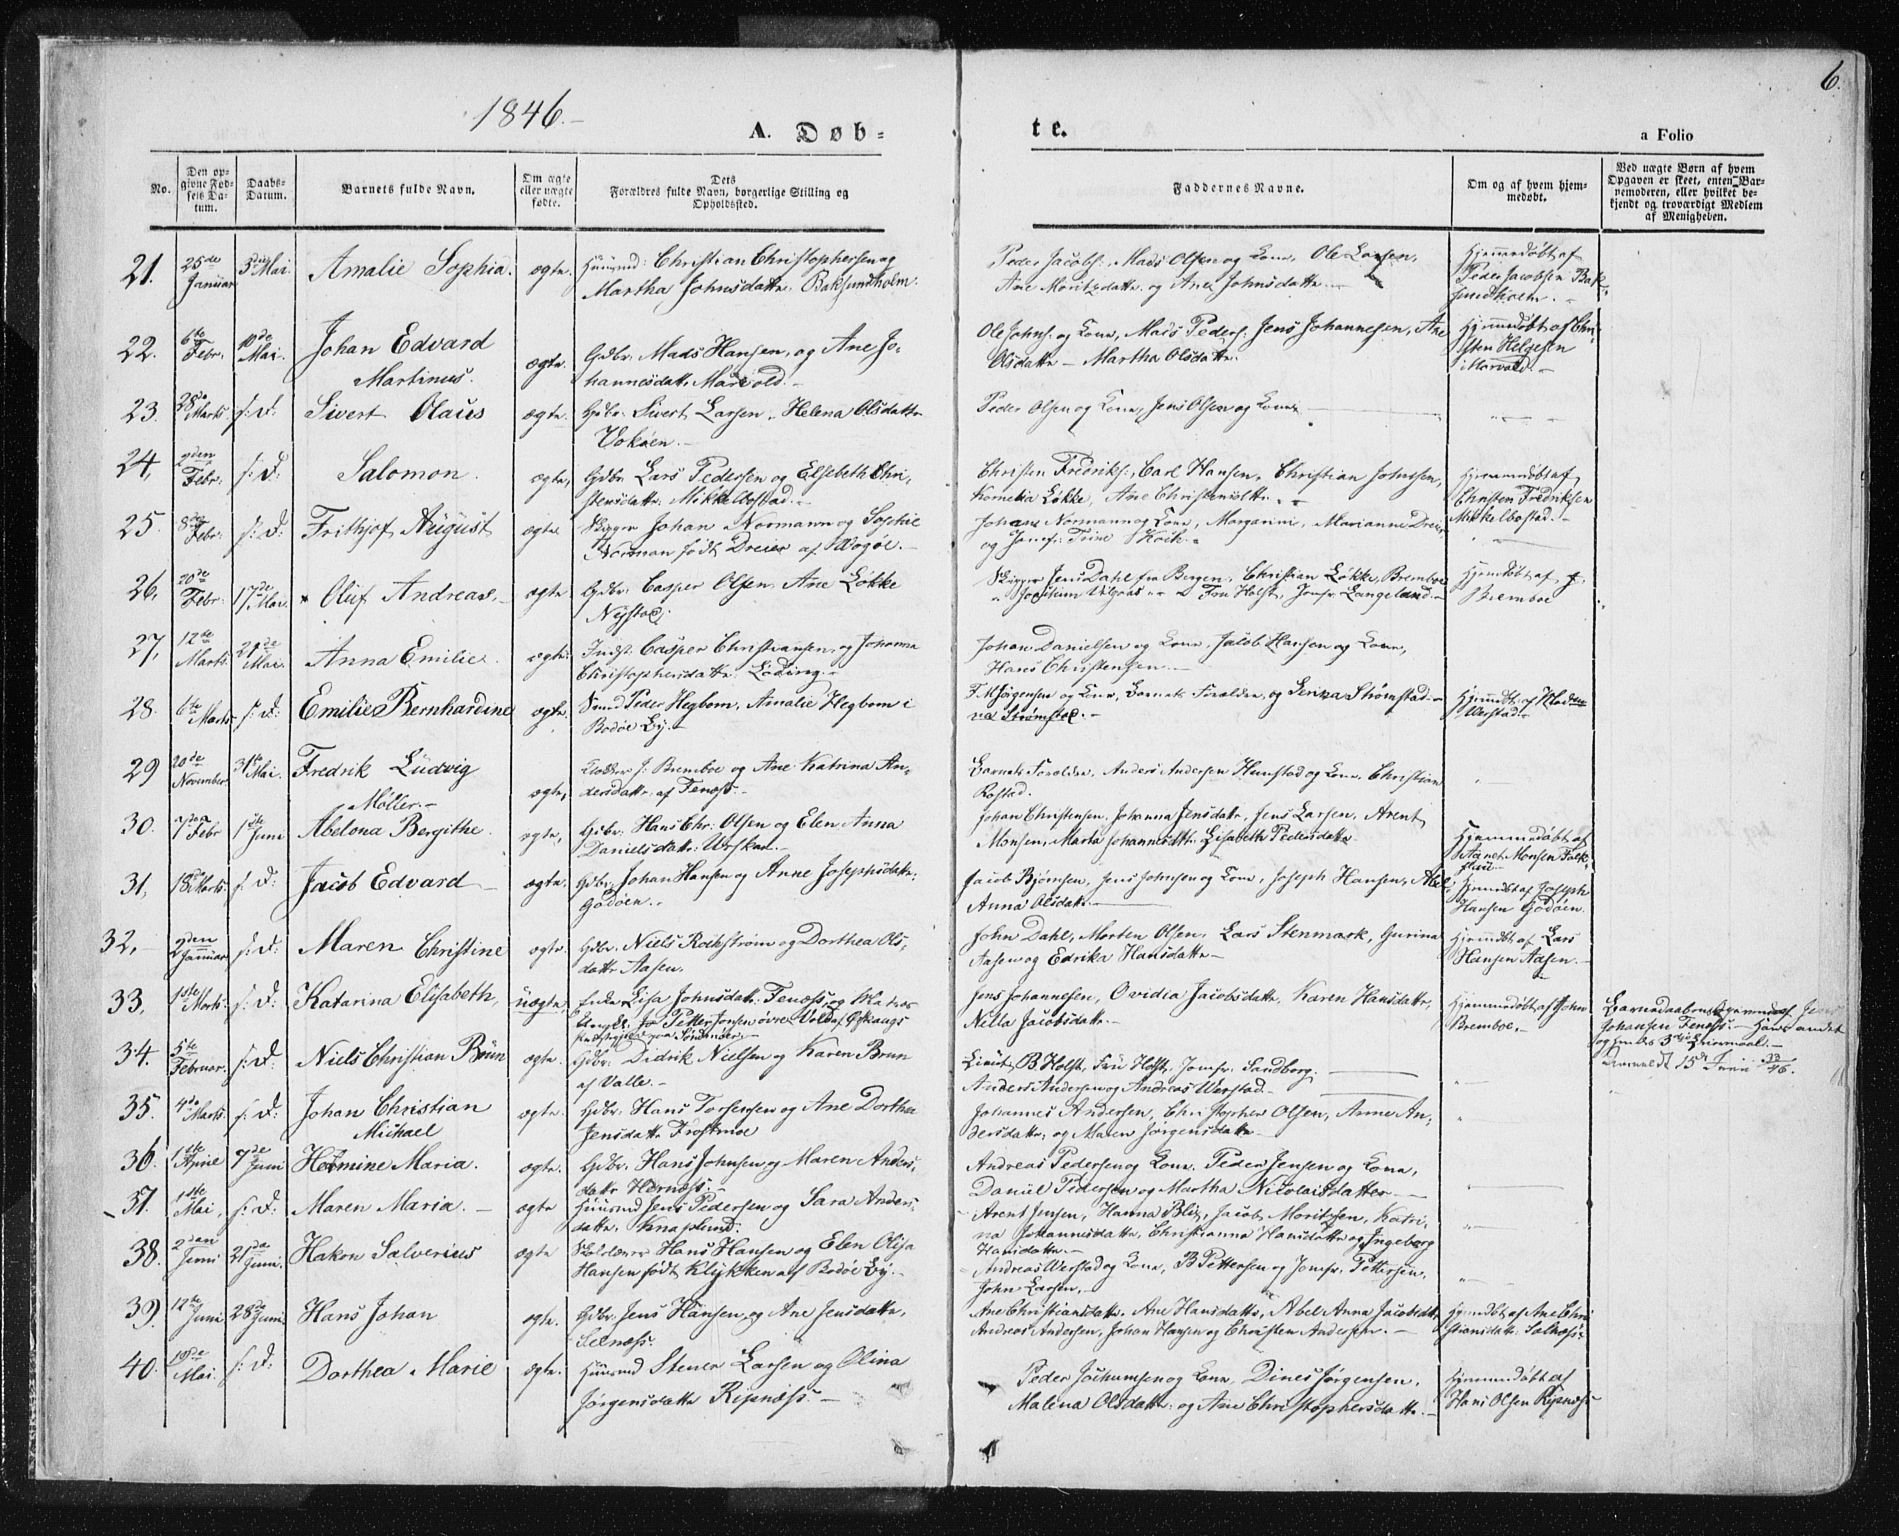 6.
1846.-
A. Døb-
te.
a Folio
No.
Den op-
givne Fød-
sels Da-
tum.
Daabs-
Datum.
Barnets fulde Navn.
Om ægte
eller uægte
fødte.
Dets
Forældres fulde Navn, borgerlige Stilling og
Opholdssted.
Faddernes Navne.
Om og af hvem hjem-
medøbt.
Ved uægte Børn af hvem
Opgaven er skeet, enten Bar-
nemoderen, eller hvilket be-
kjendt og troværdigt Medlem
af Menigheden.
21. 25de Januar 5die Mai. Amalie Sophia. ægte. Huusmd: Christian Christophersen og
Martha Johnsdattr. Baksundholm.
Peder Jacobs:, Mads Olsen og Kone, Ole Larsen,
Ane Moritzdattr. og Ane Johnsdattr.
Hjemmedøbt af
Peder Jacobsen Bak-
sundholm.-
22. 6te Febr. 10de Mai. Johan Edvard
Martinus. ægte. Gdbr. Mads Hansen, og Ane Jo-
hannesdattr. Marvold.-
Ole Johns: og Kone, Mads Peders: Jens Johannesen, Ane
Olsdattr - Martha Olsdattr.
Hjemmedøbt af Chri-
sten Helgesen
Marvold.-
23. 28de Marts s: D: Sivert Olaus ægte. Gdbr: Sivert Larsen, Helena Olsdattr
Vokøen.-
Peder Olsen og Kone, Jens Olsen og Kone
24, 2den Febr. s: D: Salomon. ægte, Gdbr Lars Pedersen og Elsebeth Chri-
stensdattr. Mikkelbostad.-
Christen Fredriks:, Carl Hansen, Christian Johnsen,
Kornelia Løkke, Ane Christensdttr.
Hjemmedøbt af
Christen Fredriksen
Mikkelbostad.-
25. 8de Febr. s: D: Frithjof August ægte Skipper Johan Normann og Sophie
Norman født Dreier af Wogøe.-
Johan Normann og Kone, Margarine, Marianne Dreier
og Jomfr: Trine Koch.
26, 20de Febr. 17de Mai. Oluf Andreas.- ægte Gdbr. Casper Olsen, Ane Løkke
Nystad.
Skipper Jens Dahl fra Bergen, Christian Løkke, Bremboe
Joachim Fru Holst, Jomfr Langeland.-
Hjemdøbt af J.
Bremboe
27, 12te Marts 21de Mai. Anna Emilie. ægte. Indst: Casper Christiansen, og Johanna
Christophersdattr. Løding.-
Johan Danielsen og Kone, Jacob Hansen og Kone,
Hans Christensen.-
28. 6te Marts s: D: Emilie Bernhardine ægte. Smed Peder Hegbom, Amalie Hegbom i
Bodøe By.-
F. M Jørgensen og Kone, Barnets Forældre, og Serina Strømstad.-
na Strømstad.-
Hjemmdt. af
Werstad.-
29 20de November 31te Mai. Fredrik Ludvig
Møller.- ægte, Klokker J: Bremboe og Ane Katrina An-
dersdattr. af Fenæss.-
Barnets Forældre, Anders Andersen Hunstad og Kone, Christian
Rostad.
30. 7de Febr 1ste Juni Abelona Bergithe. ægte, Gdbr: Hans Chr: Olsen og Elen Anna
Danielsdattr:
Johan Christensen, Johanna Jensdatr, Jens Larsen, Arent
Monsen, Marta Johannesdtt. Elisabeth Pedersdattr
Hjemmedøbt af
Arent Monsen
31, 18de Marts. s. D: Jacob Edvard - ægte. Gdbr. Johan Hansen og Anne Josephsdattr.
Godøen..
Jacob Bjørnsen, Jens Johnsen og Kone, Joseph Hansen, Abel-
Anna Olsdattr.-
Hjemmdt af Joseph
Hansen Godøen.
32, 2den Januar s: D: Maren Christine ægte. Gdbr. Niels Rockstrøm og Dorthea Ols-
dattr. Aasen.
John Dahl, Morten Olsen, Lars Stenmark, Gurina
Aasen og Edrika Hansdattr-
Hjemmdt. af Lars
Hansen Aasen.-
33, 1ste Marts. s: D: Katarina Elisabeth, uægte. Enke Lisa Johnsdattr. Fenæss, og Matros
Ungk. Jo Petter Jonsen øvre Vold af
Jens Johannesen, Ovidia Jacobsdattr, Karen Hansdattr,
Nilla Jacobsdattr.-
Hjemmedøbt af John
Bremboe.-
Johansen Fenæss.- Hans andet
og hendes 3die Leiermaal.-
Anmeldt 15de Juni
34. 5te Februar. s: D: Niels Christian Brun ægte. Gdbr. Didrik Nielsen og Karen Brun
af Valle.-
Lieut. B. Holst, Fru Holst, Jomfr. Sandberg.
Anders Andersen og Andreas Werstad.-
35. 4de Marts. s: D. Johan Christian
Michael ægte. Gdbr. Hans Torsersen og Ane Dorthea
Jensdattr Frostmoe
Johannes Andersen, Christopher Olsen, Anne An-
dersdattr. og Maren Jørgensdattr
36. 1ste April 7de Juni Hermine Maria. ægte. Gdbr. Hans Johnsen og Maren Anders-
dattr Hernæss.
Andreas Pedersen og Kone, Peder Jensen og Kone,
Daniel Pedersen og Martha Nicolaisdatter
37. 1ste Mai, s: D. Maren Maria.- ægte Huusmd Jens Pedersen og Sara Anders-
dattr. Knaplund.
Arent Jensen, Hanna Blix, Jacob Moritzsen, Katri-
na Johannesdattr, Christianna Hansdattr og Ingeborg
Hansdattr.-
38. 2den Juni 21de Juni. Hakon Salverius ægte Skolelærer Hans Hansen og Elen Olisa
Hansen født Klykken af Bodøe By.-
Andreas Werstad og Kone, B Pettersen og Jomfr. Pettersen,
John Larsen,
39. 12te Juni 28de Juni. Hans Johan ægte. Gdbr. Jens Hansen, og Ane Jensdattr,
Seinæss.
Ane Christiansdattr. Ane Hansdattr, Abel Anna Jacobsdttr,
Andreas Andersen, Johan Hansen og Christen Andersen.-
Hjemdøbt af Ane Chri-
stiansdattr.
40. 10de Mai. s: D. Dorthea Marie ægte. Huusmd Stener Larsen og Olina
Jørgensdattr Ripnæss.-
Peder Jochumsen og Kone, Dines Jørgensen.
Malena Olsdattr. og Ane Christophersdattr.-
Hjemmedøbt af
Hans Olsen Ripnæss